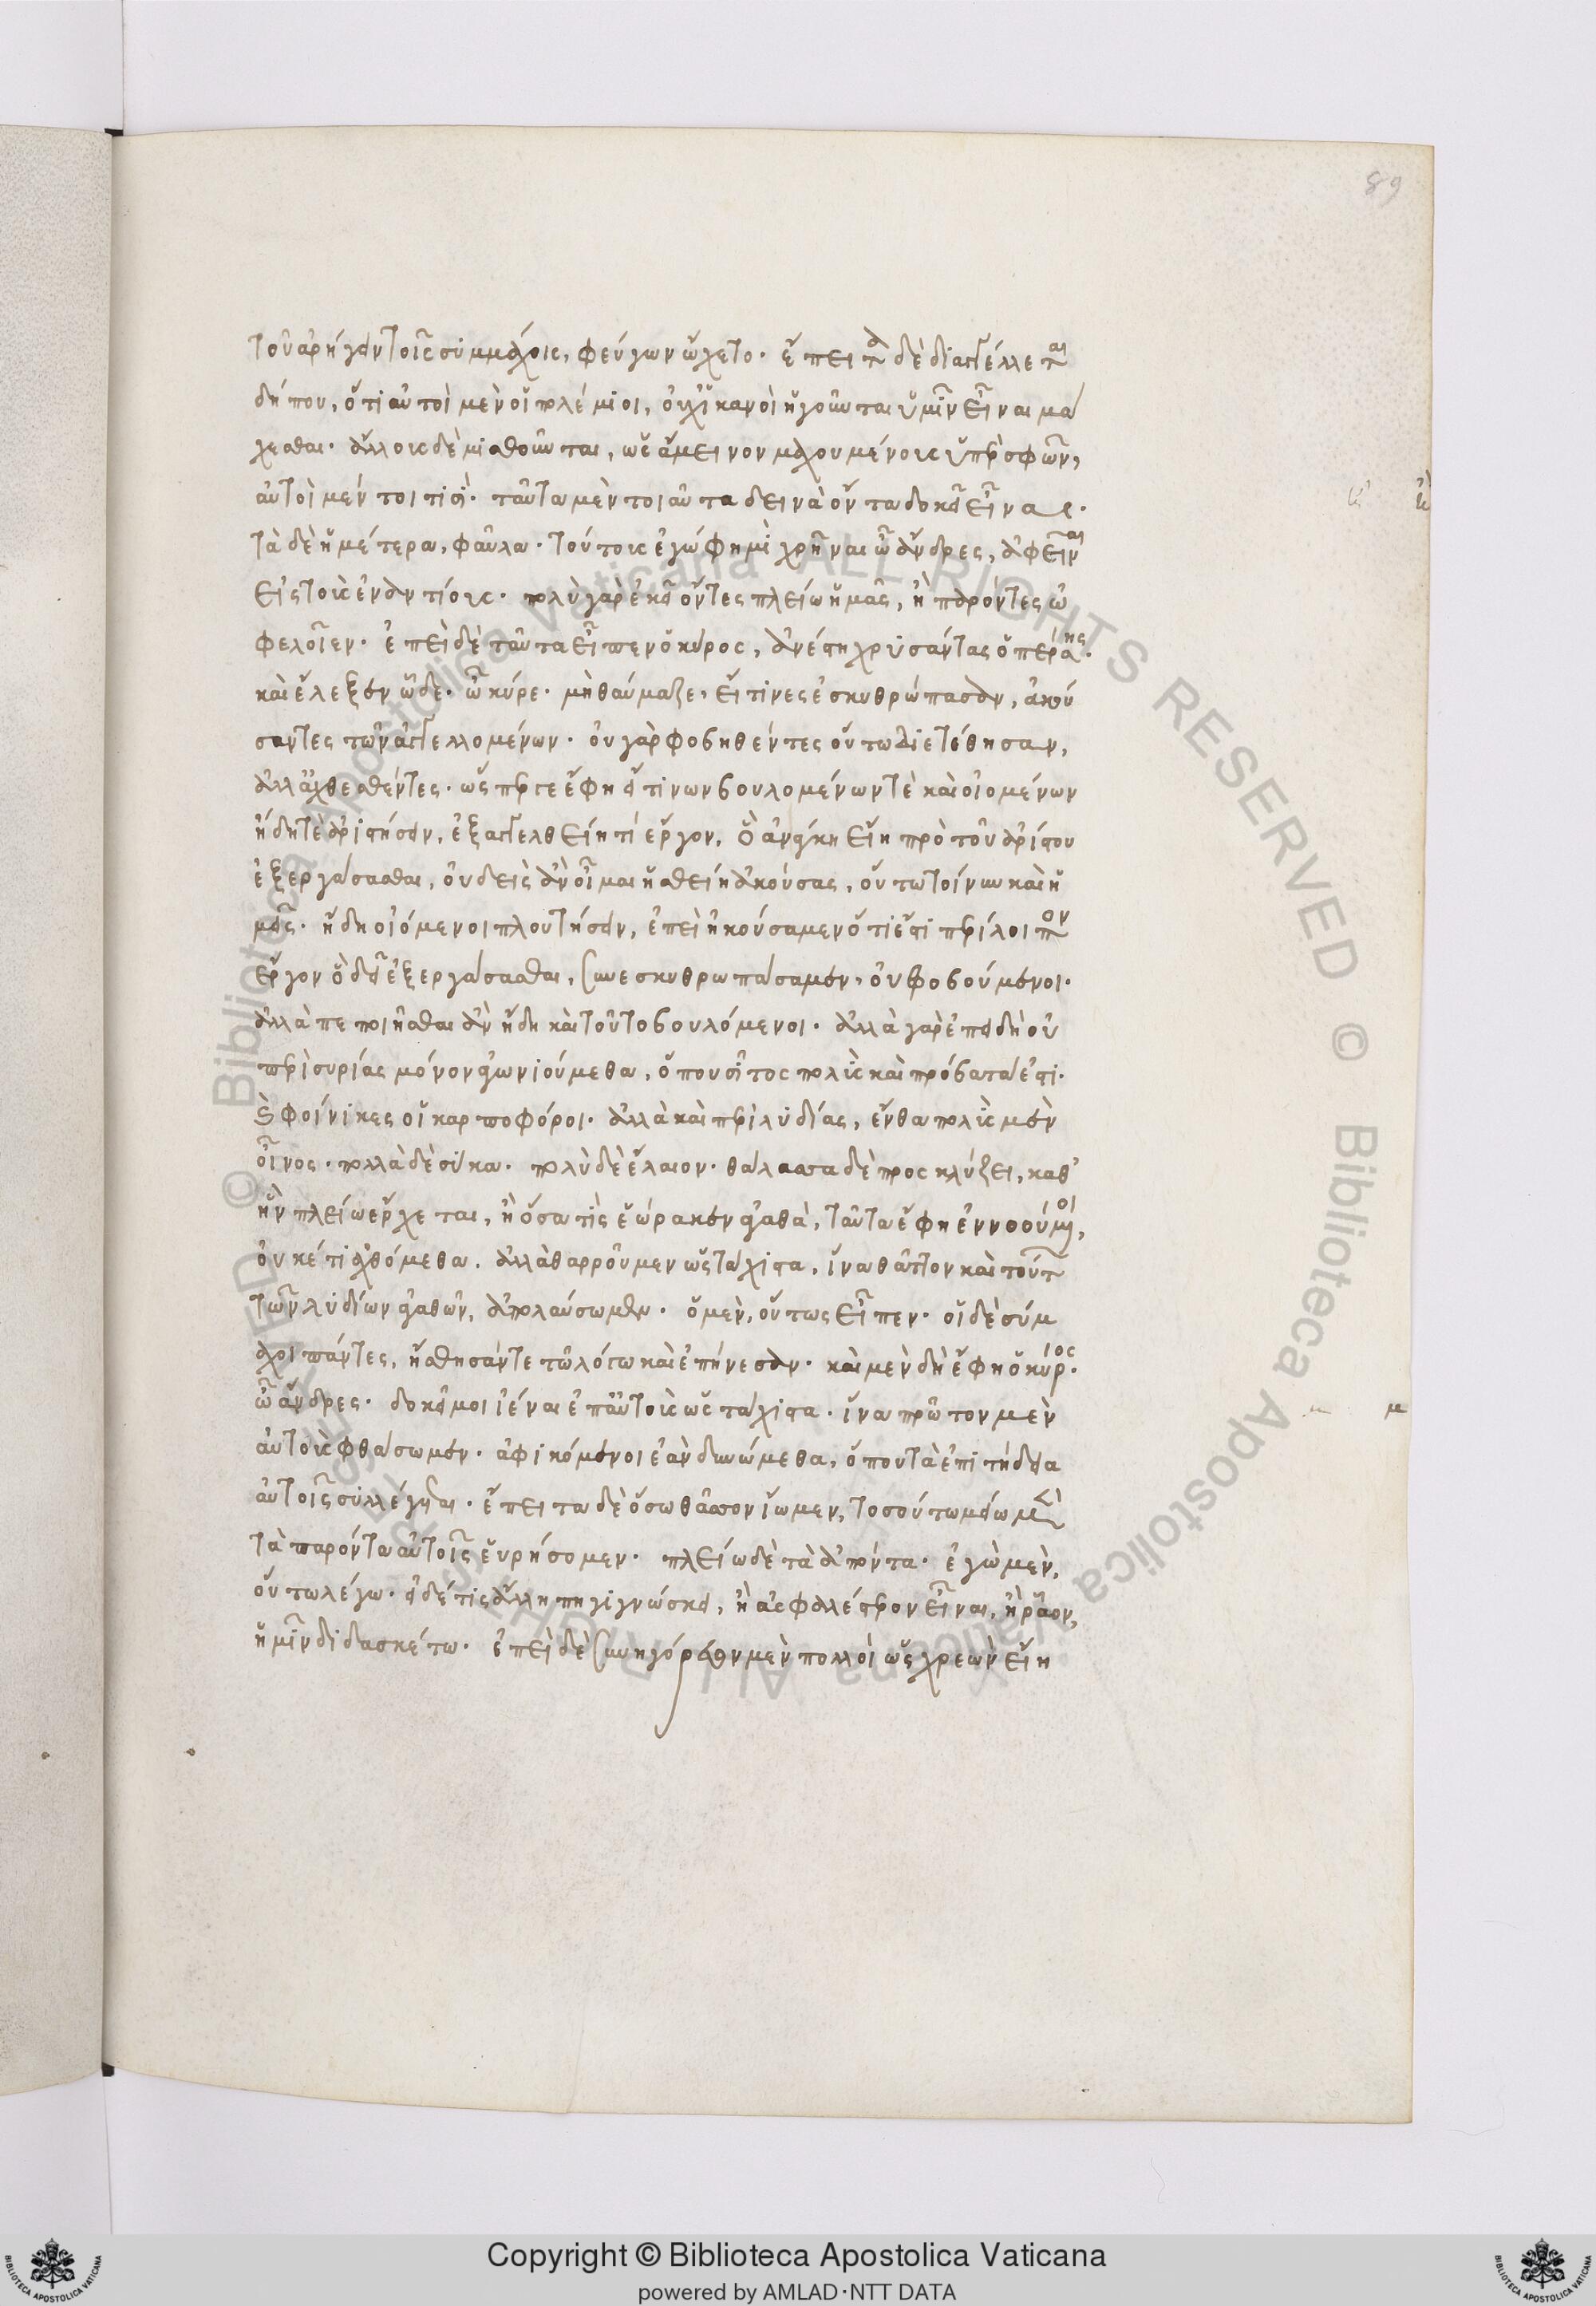 89
τοῦ ἀρήγειν τοῖς συμμάχοις, φεύγων ᾤχετο. ἔπειτα δὲ διαγγέλλεται
δήπου, ὅτι αὐτοὶ μὲν οἱ πολέμιοι, οὐχ ἱκανοὶ ἡγοῦνται ὑμῖν εἶναι μά
χεσθαι. ἄλλους δὲ μισθοῦνται, ὡς ἄμεινον μαχουμένους ὑπὲρ σφῶν,
αὐτοὶ μέν τοι τισὶ. ταῦτα μὲν τοιαῦτα δεινὰ ὄντα δοκεῖ εἶναι.
τὰ δὲ ἡμέτερα, φαῦλα. τούτους ἐγώ φημὶ χρῆναι ὦ ἄνδρες, ἀφεῖναι
εἰς τοὺς ἐναντίους. πολὺ γὰρ ἐκεῖ ὄντες πλείω ἡμᾶς, ἢ παρόντες ὠ
φελοῖεν. ἐπεὶ δὲ ταῦτα εἶπεν ὁ κῦρος, ἀνέστη χρυσάντας ὁ πέρσης.
καὶ ἔλεξεν ὧδε. ὦ κῦρε. μὴ θαύμαζε, εἴ τινες ἐσκυθρώπασαν, ἀκού
σαντες τῶν ἀγγελλομένων. οὐ γὰρ φοβηθέντες οὕτω διετέθησαν,
ἀλλ' ἀχθεσθέντες. ὥς περ γε ἔφη εἴ τινων βουλομένων τὲ καὶ οἰομένων
ἤδη τὲ ἀριστήσειν, ἐξαγγελθείη τί ἔργον, ὃ ἀνάγκη εἴη πρὸ τοῦ ἀρίστου
ἐξεργάσασθαι, οὐδεὶς ἂν οἶμαι ἡσθείη ἀκούσας, οὕτω τοίνυν καὶ ἡ
μεῖς. ἤδη οἰόμενοι πλουτήσειν, ἐπεὶ ἠκούσαμεν ὅτι ἐστὶ περίλοιπον
ἔργον ὃ δεῖ ἐξεργάσασθαι, συνεσκυθρωπάσαμεν, οὐ φοβούμενοι.
ἀλλὰ πεποιῆσθαι ἂν ἤδη καὶ τοῦτο βουλόμενοι. ἀλλὰ γὰρ ἐπειδὴ οὐ
περὶ συρίας μόνον ἀγωνιούμεθα, ὅπου σῖτος πολὺς καὶ πρόβατά ἐστι.
καὶ φοίνικες οἱ καρποφόροι. ἀλλὰ καὶ περὶ λυδίας, ἔνθα πολὺς μὲν
οἶνος. πολλὰ δὲ σύκα. πολὺ δὲ ἔλαιον. θάλασσα δὲ προς κλύζει, καθ'
ἣν πλείω ἔρχεται, ἢ ὅσα τὶς ἑώρακεν ἀγαθὰ, ταῦτα ἔφη ἐννοούμενοι,
οὐκέτι ἀχθόμεθα. ἀλλὰ θαρροῦμεν ὡς τάχιστα, ἵνα θᾶττον καὶ τούτων
τῶν λυδίων ἀγαθῶν, ἀπολαύσωμεν. ὁ μὲν, οὕτως εἶπεν. οἱ δὲ σύμ
μαχοι πάντες, ἥσθησάν τε τῷ λόγω καὶ ἐπήνεσαν. καὶ μὲν δὴ ἔφη ὁ κῦρος.
ὦ ἄνδρες. δοκεῖ μοι ἰέναι ἐπ' αὐτοὺς ὡς τάχιστα. ἵνα πρῶτον μὲν
αὐτοὺς φθάσωμεν. ἀφικόμενοι ἐὰν δυνώμεθα, ὅπου τὰ ἐπιτήδεια
αὐτοῖς συλλέγεται. ἔπειτα δὲ ὅσω θᾶσσον ἴωμεν, τοσούτω μείω μὲν
τὰ παρόντα αὐτοῖς εὑρήσομεν. πλείω δὲ τὰ ἀπόντα. ἐγὼ μὲν,
οὕτω λέγω. εἰ δέ τις ἄλλη πη γιγνώσκει, ἢ ἀσφαλέστερον εἶναι, ἢ ῥᾶον,
ἡμῖν διδασκέτω. ἐπεὶ δὲ συνηγόρευον μὲν πολλοὶ ὡς χρεὼν εἴη
© Biblioteca Apostolica Vaticana ALL RIGHTS RESERVED © Biblioteca Apostolica Vaticana ALL RIGHTS RESERVED
Copyright © Biblioteca Apostolica Vaticana
powered by AMLAD·NTT DATA
BIBLIOTECA APOSTOLICA VATICANA
BIBLIOTECA APOSTOLICA VATICANA